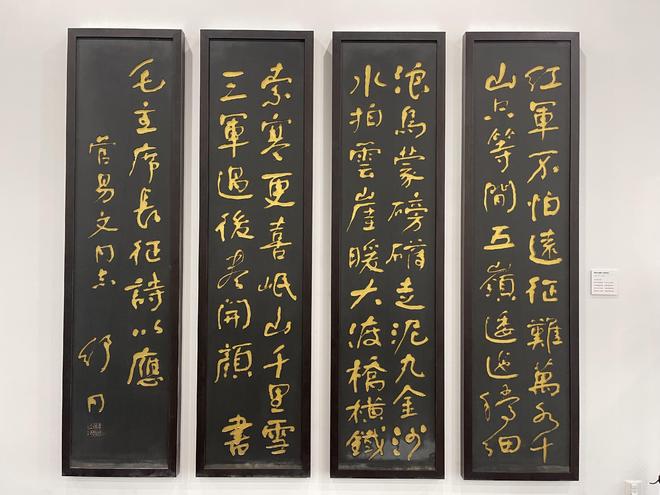 紅軍不怕遠征難萬水千
山只等間五嶺逶迤騰細
浪烏蒙磅礴走泥丸金沙
水拍雲崖暖大渡橋橫鐵
索寒更喜岷山千里雪
三軍過後盡開顏 書
毛主席長征詩以應
管易文同志 舒同